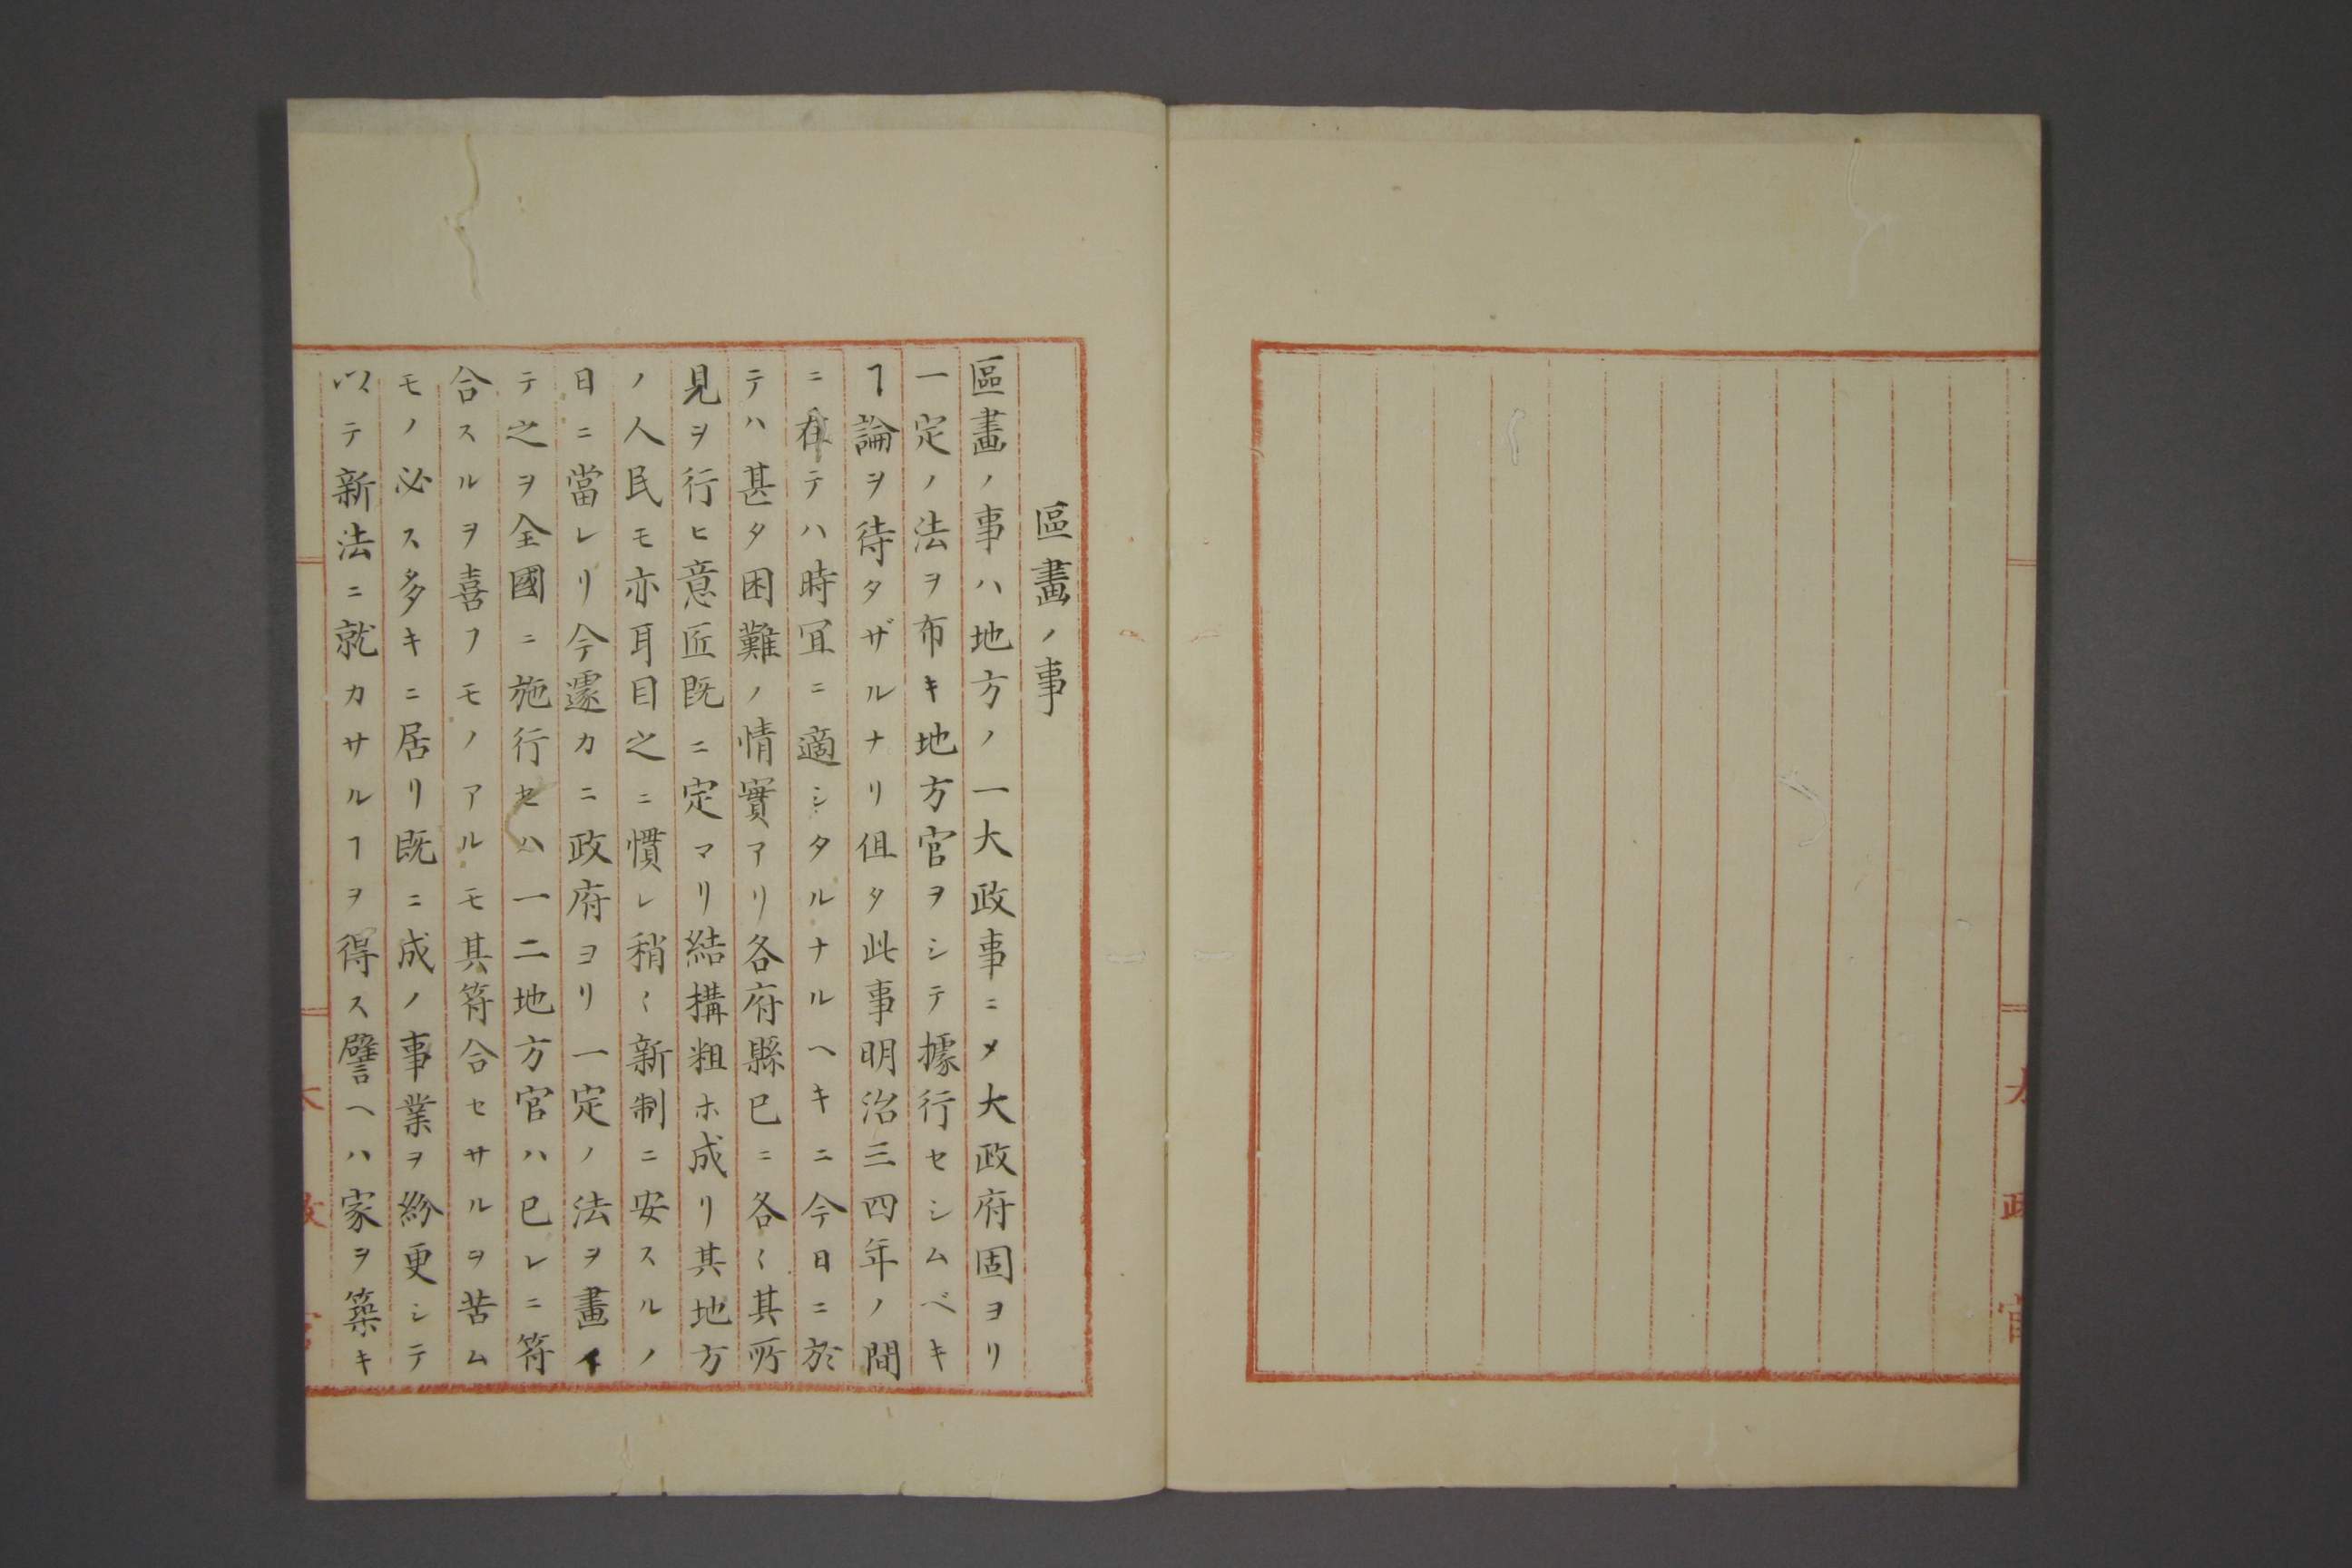 區畫ノ事
區畫ノ事ハ地方ノ一大政事ニ〆大政府固ヨリ
一定ノ法ヲ布キ地方官ヲシテ據行セシムベキ
ヿ論ヲ待タザルナリ伹タ此事明治三四年ノ間
ニ在テハ時冝ニ適シタルナルヘキニ今日ニ於
テハ甚タ困難ノ情實アリ各府縣已ニ各〻其所
見ヲ行ヒ意匠既ニ定マリ結構粗ホ成リ其地方
ノ人民モ亦耳目之ニ慣レ稍〻新制ニ安スルノ
日ニ當レリ今遽カニ政府ヨリ一定ノ法ヲ畫イ
テ之ヲ全國ニ施行セハ一二地方官ハ已レニ符
合スルヲ喜フモノアルモ其符合セサルヲ苦ム
モノ必ス多キニ居リ既ニ成ノ事業ヲ紛更シテ
以テ新法ニ就カサルヿヲ得ス譬ヘハ家ヲ築キ
太政官